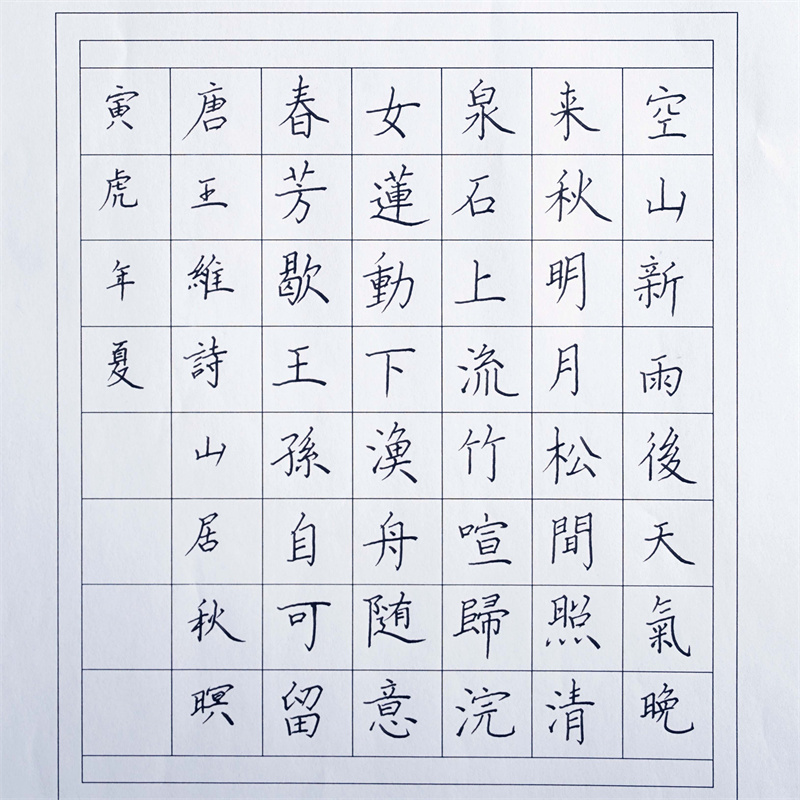 空山新雨後天氣晚
来秋明月松間照清
泉石上流竹喧歸浣
女蓮動下漁舟随意
春芳歇王孫自可留
唐王維詩山居秋暝
寅虎年夏